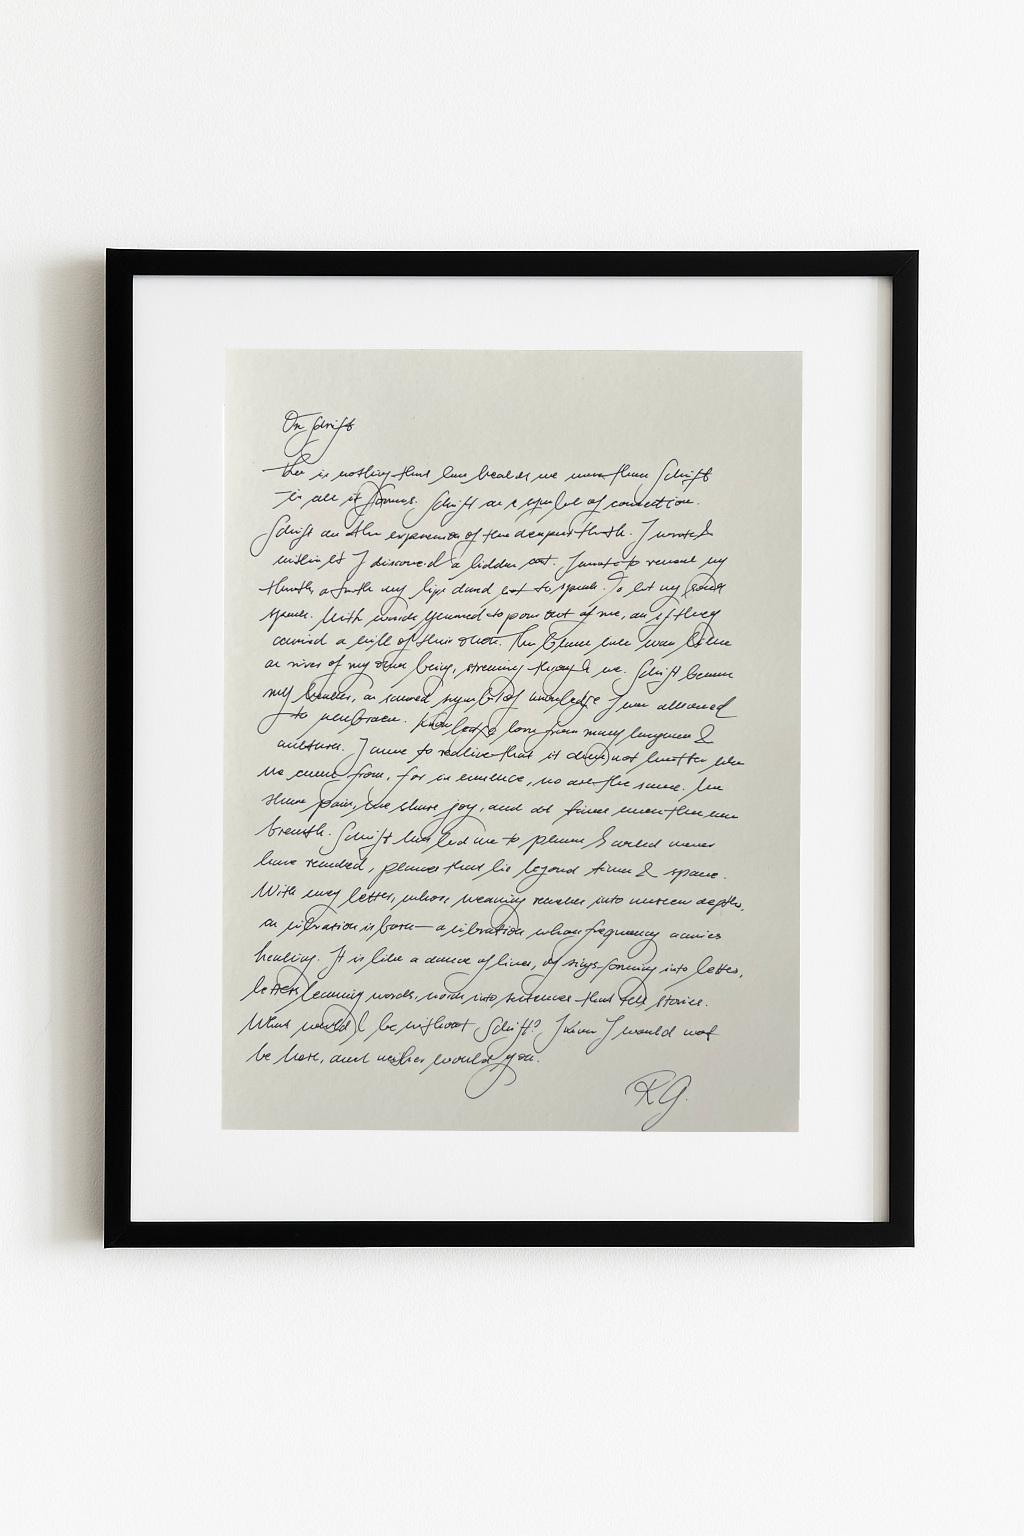 On Schrift
there is nothing that has healed me more than Schrift
in all its forms. Schrift as a symbol of connection.
Schrift as the expression of the deepest truth. I wrote &
within it I discovered a hidden I want to remove my
my lips dared not to speak. To let my soul
speak. With words yearned to pour out of me, as if they
carried a life of their own. The blue was like
a river of my own being, streaming through me. Schrift became
my healer, a sacred symbol of knowledge I was allowed
to embrace. Knowledge born from many languages &
cultures. I came to realize that it does not matter where
we come from, for in essence, we are the same. We
share pain, we share joy, and at times even the same
breath. Schrift has led me to places I would never
have reached, places that lie beyond time & space.
With every letter, whose meaning reaches into unseen depths,
a vibration is born — a vibration whose frequency carries
healing. It is like a dance of lines, of signs forming into letters,
letters becoming words, words into sentences that tell stories.
What would I be without Schrift? I know I would not
be here, and neither would you.
R.G.